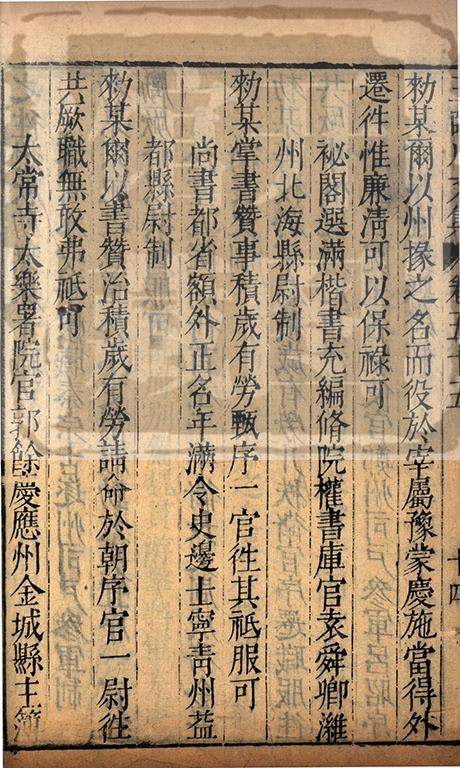 敕某爾以州掾之名而役於宰屬豫蒙慶施當得外
遷徃惟廉清可以保祿可
祕閣選滿楷書充編脩院權書庫官袁舜卿濰
州北海縣尉制
敕某掌書贊事積歲有勞甄序一官徃其祗服可
尚書都省額外正名年滿令史邊士寧青州益
都縣尉制
敕某爾以書贊治積歲有勞請命於朝序官一尉徃
共厥職無敢弗祗可
太常寺太樂署院官郭餘慶應州金城縣主簿